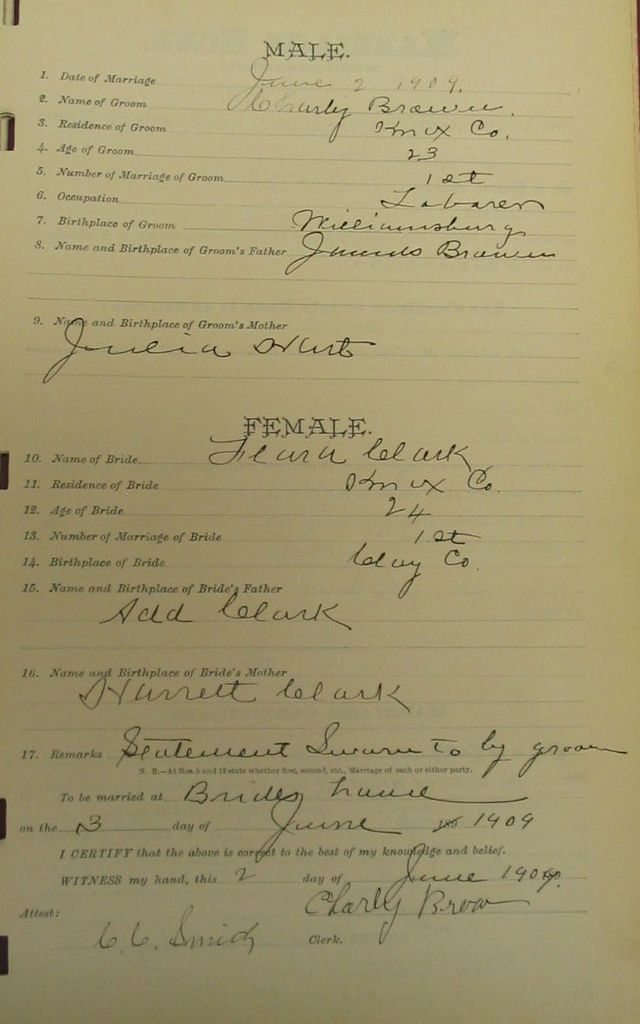 MALE.
1. Date of Marriage June 2 1909.
2. Name of Groom Charly Brown.
3. Residence of Groom Knox Co.
4. Age of Groom 23
5. Number of Marriage of Groom 1st
6. Occupation Labarer
7. Birthplace of Groom Williamsburg
8. Name and Birthplace of Groom's Father Brown
9. Name and Birthplace of Groom's Mother
Julia
FEMALE.
10. Name of Bride Flara Clark
11. Residence of Bride Knox Co.
12. Age of Bride 24
13. Number of Marriage of Bride 1st
14. Birthplace of Bride Clay Co.
15. Name and Birthplace of Bride's Father
Add Clark
16. Name and Birthplace of Bride's Mother
Harrett Clark
17. Remarks Statement Sworn to by groom
N. B.—At Nos. 5 and 13 state whether first, second, etc., Marriage of each or either party.
To be married at Brides house
on the 3 day of June 1909
I CERTIFY that the above is correct to the best of my knowledge and belief.
WITNESS my hand, this 2 day of June 1909.
Charly Brow
Attest:
C. C. Smith Clerk.